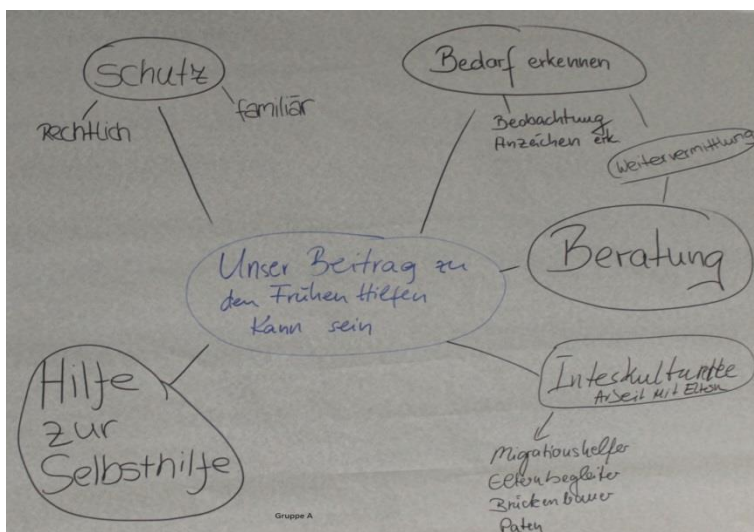 Schutz
Rechtlich
familiär
Bedarf erkennen
Beobachtung
Anzeichen erk.
Weitervermittlung
Unser Beitrag zu
den Frühen Hilfen
kann sein
Beratung
Interkulturelle
Arbeit mit Eltern
Migrationshelfer
Elternbegleiter
Brückenbauer
Paten
Hilfe
zur
Selbsthilfe
Gruppe A